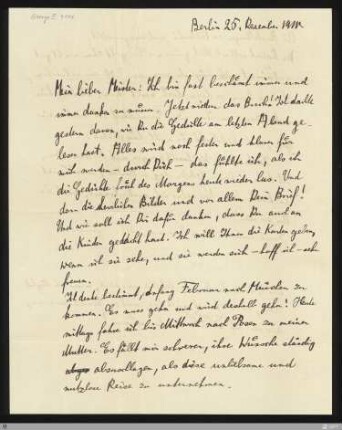 Berlin 25. Dezember 19
Mein lieber Meister: Ich bin fast beschämt immer und
immer danken zu müssen. Jetzt wieder das Buch! Ich dachte
gestern daran, wie Du die Gedichte am letzten Abend ge-
lesen hast. Alles wird noch fester und klarer für
mich werden – durch Dich – das fühlte ich, als ich
die Gedichte früh des Morgens heute wieder las. Und
dann die herrlichen Bilder und vor allem Dein Brief!
Und wie soll ich Dir dafür danken, dass Du auch an
die Kinder gedacht hast. Ich will Ihnen die Karten geben,
wenn ich sie sehe, und sie werden sich – hoff ich – sehr
freuen.
Ich denke bestimmt, anfang Februar nach München zu
kommen. Es muss gehn und wird deshalb gehn! Heute
mittag fahre ich bis Mittwoch nach Posen zu meiner
Mutter. Es fällt mir schwerer, ihre Wünsche ständig
abzuschlagen, als diese unliebsame und
nutzlose Reise zu unternehmen.